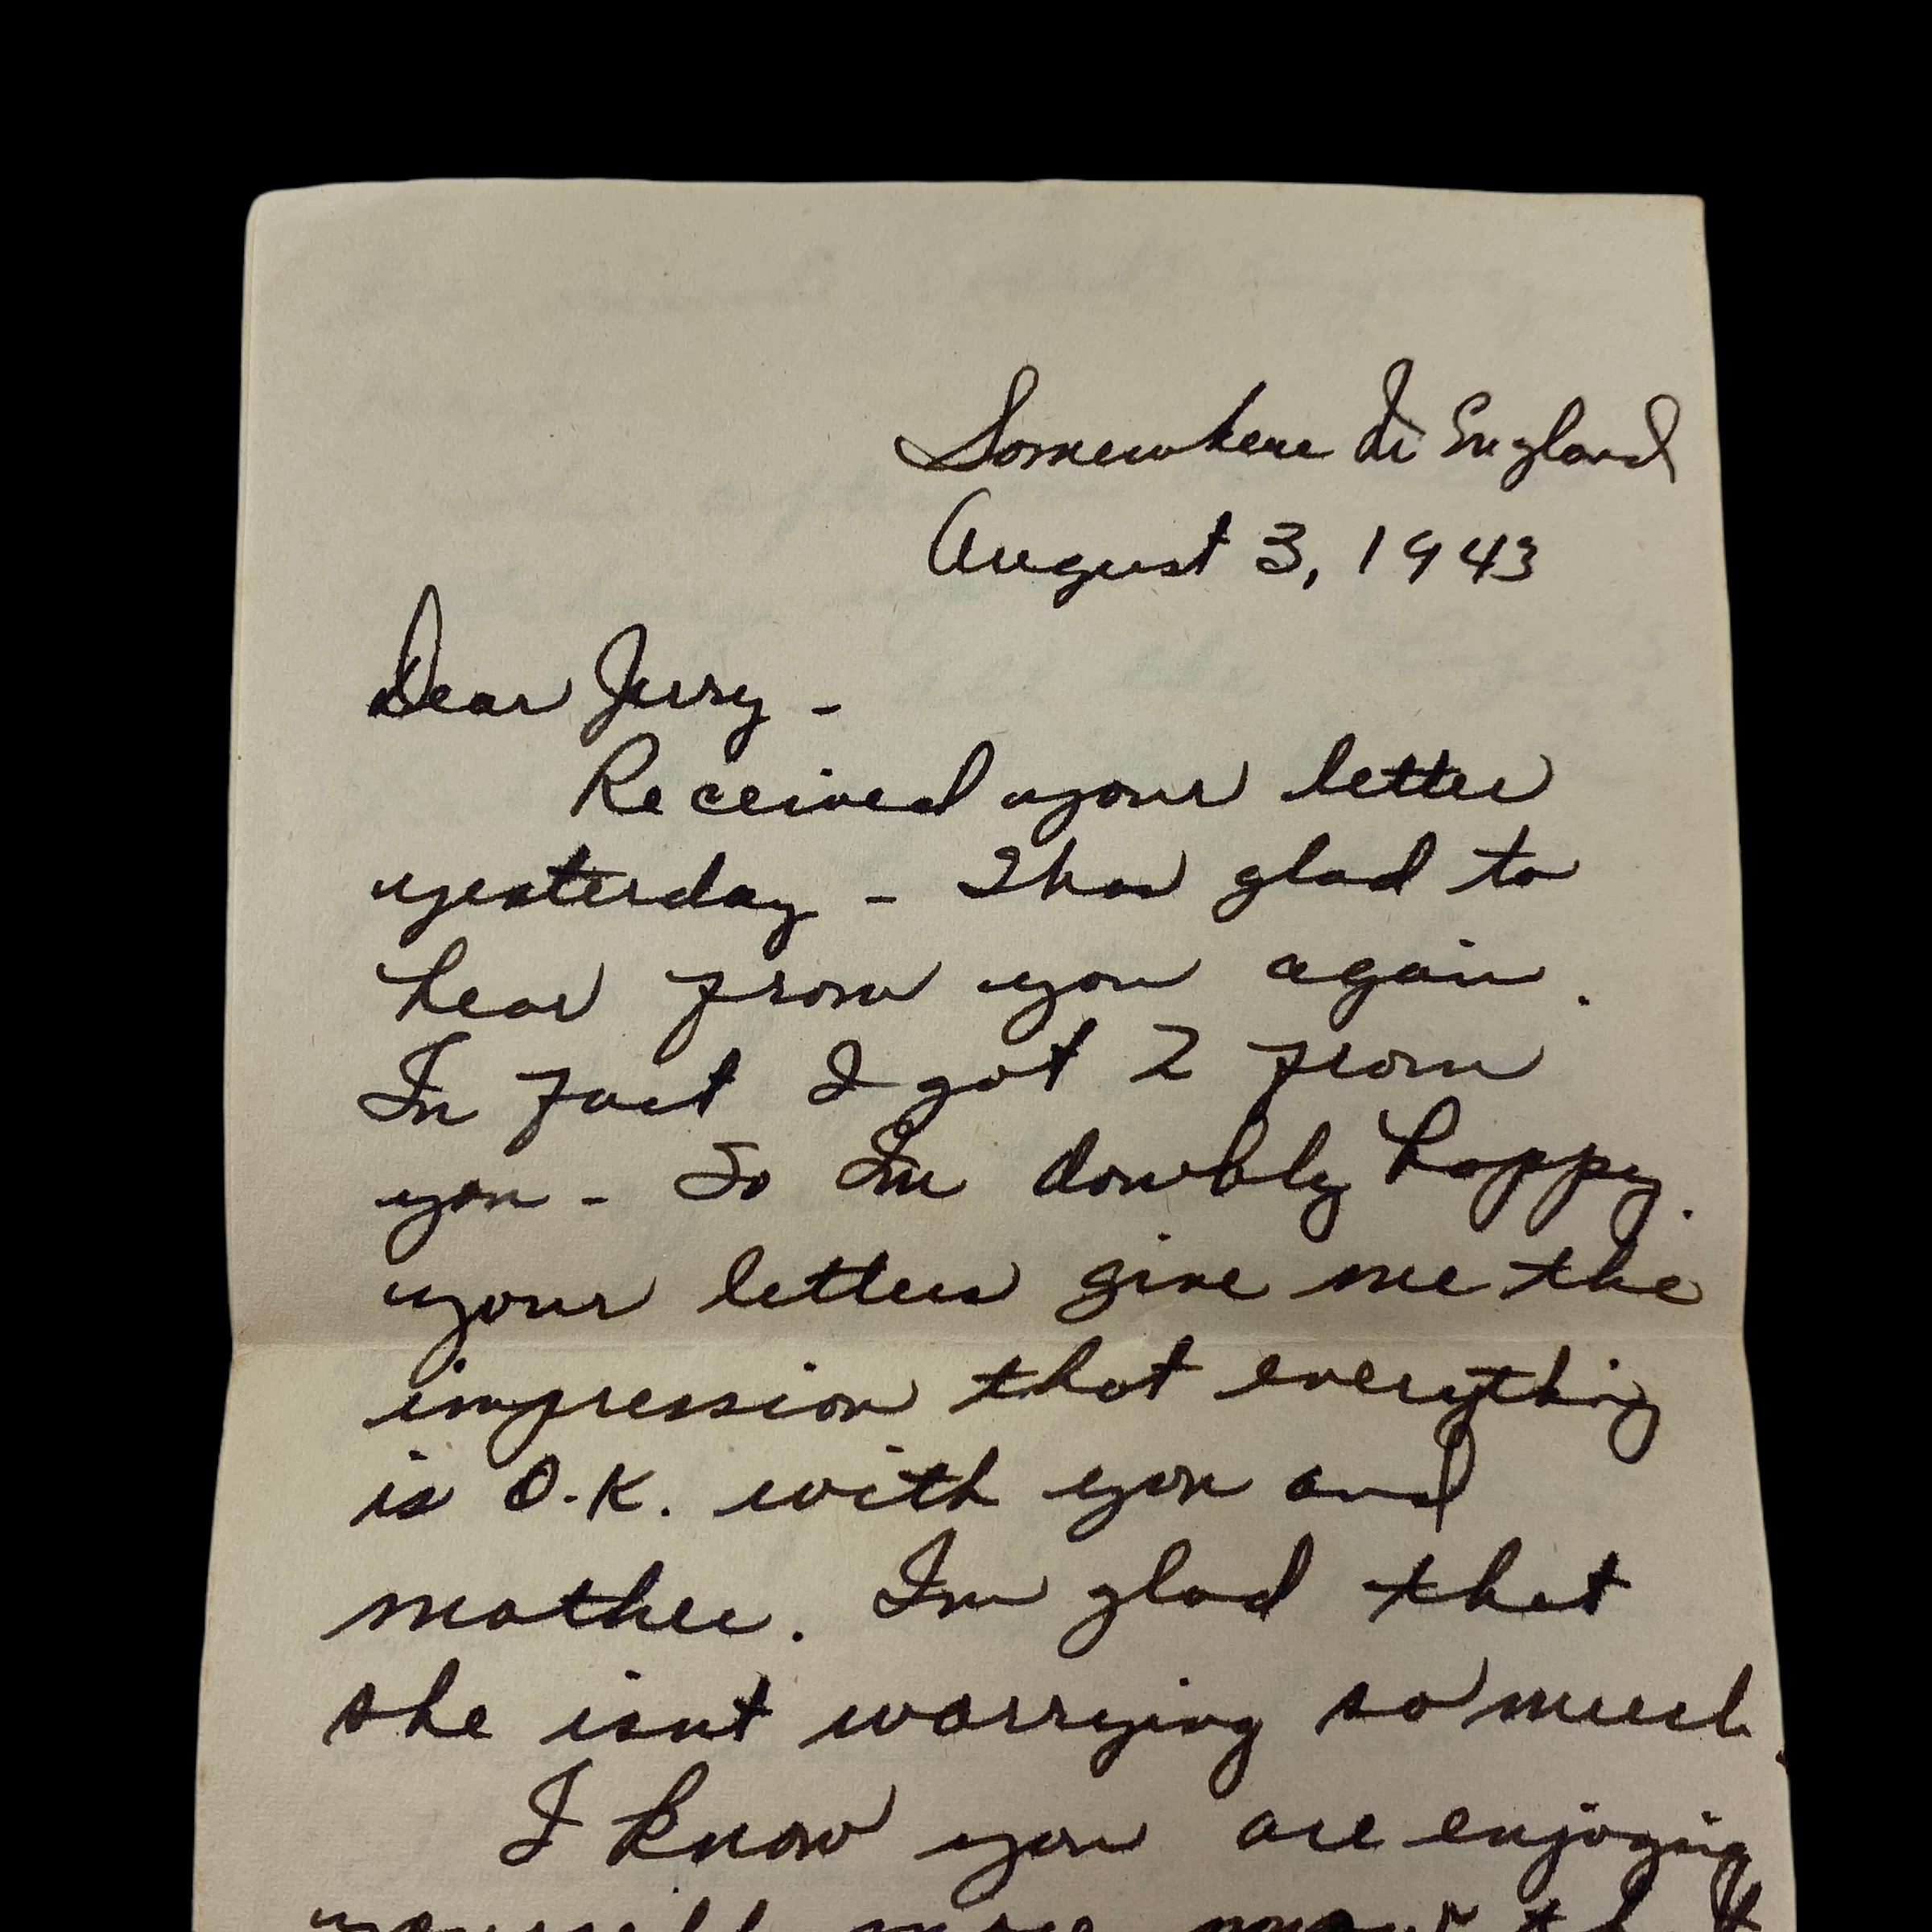 Somewhere In England
August 3, 1943
Dear Jerry -
Received your letter
yesterday - glad to
hear from you again.
In fact I got 2 from
you - So Im doubly happy.
your letters give me the
impression that everything
is O.K. with you and
mother. Im glad that
she isnt worrying so much.
I know you are enjoying
yourself more now that